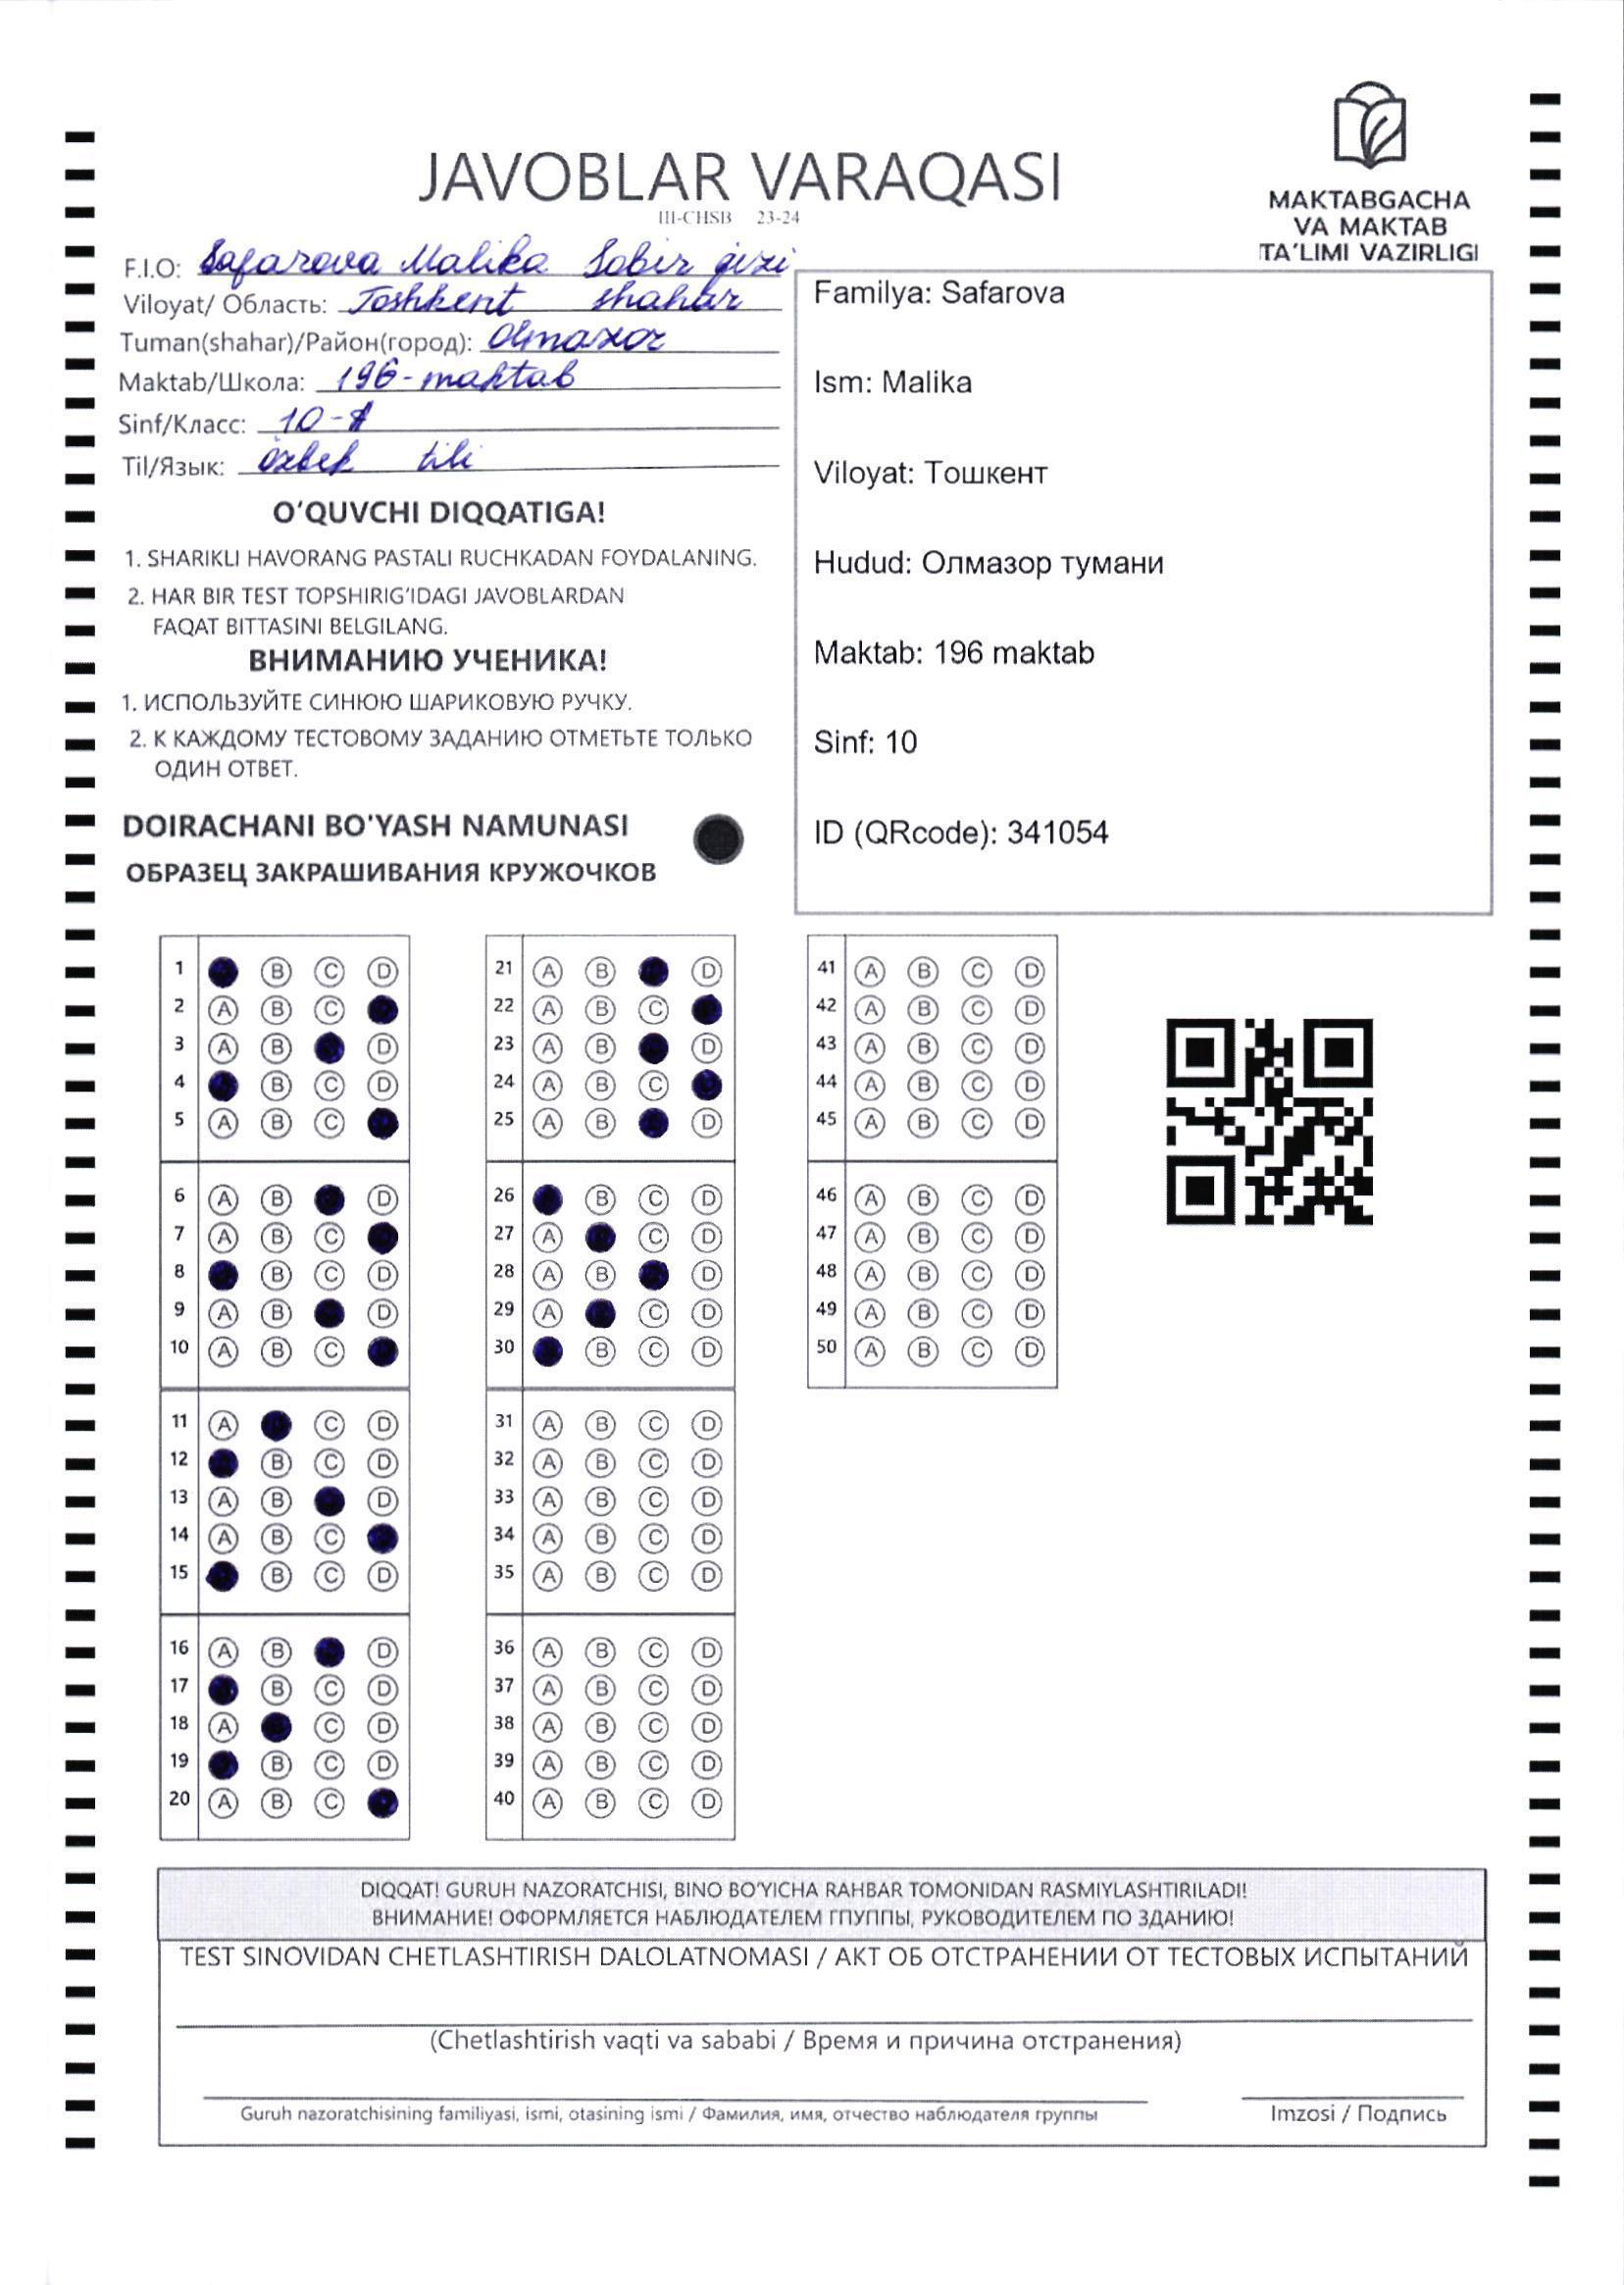 JAVOBLAR VARAQASI
III-CHSB 23-24
MAKTABGACHA
VA MAKTAB
TA'LIMI VAZIRLIGI
F.I.O: Safarova Malika Sobir qizi
Viloyat/ Область: Toshkent shahar
Tuman(shahar)/Район(город): Olmazor
Maktab/Школа: 196-maktab
Sinf/Класс: 10-
Til/Язык: o'zbek tili
O'QUVCHI DIQQATIGA!
1. SHARIKLI HAVORANG PASTALI RUCHKADAN FOYDALANING.
2. HAR BIR TEST TOPSHIRIG'IDAGI JAVOBLARDAN
FAQAT BITTASINI BELGILANG.
ВНИМАНИЮ УЧЕНИКА!
1. ИСПОЛЬЗУЙТЕ СИНЮЮ ШАРИКОВУЮ РУЧКУ.
2. К КАЖДОМУ ТЕСТОВОМУ ЗАДАНИЮ ОТМЕТЬТЕ ТОЛЬКО
ОДИН ОТВЕТ.
DOIRACHANI BO'YASH NAMUNASI
ОБРАЗЕЦ ЗАКРАШИВАНИЯ КРУЖОЧКОВ
Familya: Safarova
Ism: Malika
Viloyat: Тошкент
Hudud: Олмазор тумани
Maktab: 196 maktab
Sinf: 10
ID (QRcode): 341054
1 B C D
2 A B C
3 A B D
4 B C D
5 A B C
6 A B D
7 A B C
8 B C D
9 A B D
10 A B C
11 A C D
12 B C D
13 A B D
14 A B C
15 B C D
16 A B D
17 B C D
18 A C D
19 B C D
20 A B C
21 A B D
22 A B C
23 A B D
24 A B C
25 A B D
26 B C D
27 A C D
28 A B D
29 A C D
30 B C D
31 A B C D
32 A B C D
33 A B C D
34 A B C D
35 A B C D
36 A B C D
37 A B C D
38 A B C D
39 A B C D
40 A B C D
41 A B C D
42 A B C D
43 A B C D
44 A B C D
45 A B C D
46 A B C D
47 A B C D
48 A B C D
49 A B C D
50 A B C D
DIQQAT! GURUH NAZORATCHISI, BINO BO'YICHA RAHBAR TOMONIDAN RASMIYLASHTIRILADI!
ВНИМАНИЕ! ОФОРМЛЯЕТСЯ НАБЛЮДАТЕЛЕМ ГПУППЫ, РУКОВОДИТЕЛЕМ ПО ЗДАНИЮ!
TEST SINOVIDAN CHETLASHTIRISH DALOLATNOMASI / АКТ ОБ ОТСТРАНЕНИИ ОТ ТЕСТОВЫХ ИСПЫТАНИЙ
(Chetlashtirish vaqti va sababi / Время и причина отстранения)
Guruh nazoratchisining familiyasi, ismi, otasining ismi / Фамилия, имя, отчество наблюдателя группы
Imzosi / Подпись